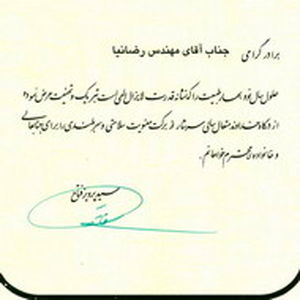 برادر گرامی جناب آقای مهندس رضانیا
حلول سال نو و بهار طبیعت را که نشانه قدرت لایزال الهی است تبریک و تهنیت عرض نموده
از درگاه خداوند متعال سالی سرشار از برکت معنویت سلامتی و سربلندی را برای جنابعالی
و خانواده‌ی محترم خواهانم.
سید پرویز فتاح